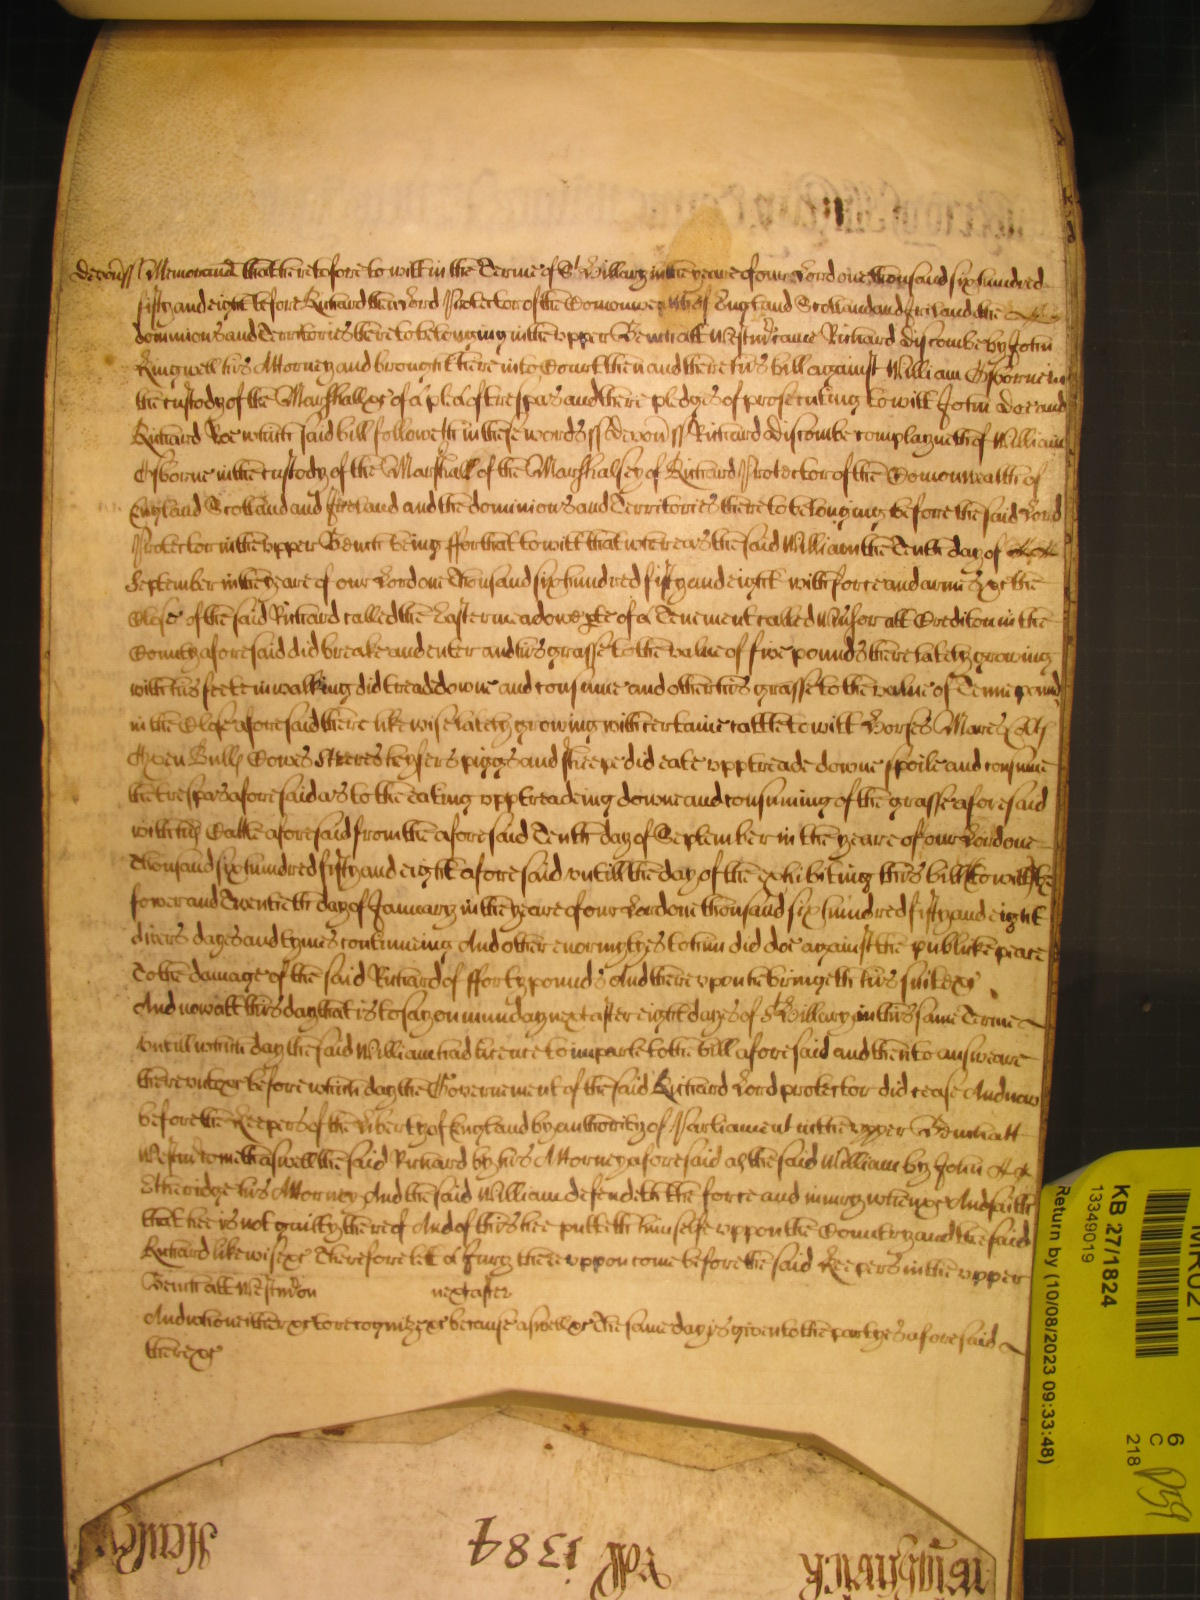 Devon ss Memorand that heretofore to witt in the Terme of St Hillary in the yeare of our Lord one thousand six hundred
fifty and eight before Richard then Lord Protector of the Comonwealth of England Scotland and Ireland and the
dominions and Territories thereto belonging in the upper Bench att Westmr came Richard Discombe by John
Ringwell his Attorney and brought here into Court then and there his bill against William Osborne in
the custody of the Marshall &c of a plea of trespas and there pledges of prosecuting to witt John Doe and
Richard Roe which said bill followeth in these words ss Devon ss Richard Discombe complayneth of William
Osborne in the custody of the Marshall of the Marshalsey of Richard Protector of the Comonwealth of
England Scotland and Ireland and the dominions and Territories thereto belonging before the said Lord
Protector in the upper Bench being ffor that to witt that whereas the said William the Tenth day of
September in the yeare of our Lord one thousand six hundred fifty and eight with force and armes &c the
Close of the said Richard called the Easter meadowe &c of a Tenement called att Crediton in the
County aforesaid did breake and enter and his grasse to the value of five pounds there lately growing
with his feete in walking did treade downe and consume and other his grasse to the value of Tenne pounds
in the Close aforesaid there likewise lately growing with certaine cattle to witt Horses Mares
Oxen Bulls Cowes Steeres heyfers piggs and sheepe did eate upp treade downe spoile and consume
the trespas aforesaid as to the eating upp treadeing downe and consuming of the grasse aforesaid
with the Cattle aforesaid from the aforesaid Tenth day of September in the yeare of our Lord one
thousand six hundred fifty and eight aforesaid untill the day of the exhibiting this bill to witt the
fower and Twentieth day of January in the yeare of our Lord one thousand six hundred fifty and eight
divers dayes and tymes continueing And other enormityes to him did doe against the publicke peace
To the damage of the said Richard of fforty pounds And thereupon he bringeth his suite &c
And now att this day that is to say on munday next after eight dayes of St Hillary in this same Terme
untill which day the said William had licence to imparle to the bill aforesaid and then to answeare
thereunto &c before which day the Government of the said Richard Lord protector did cease And now
before the Keepers of the Liberty of England by authority of Parliament in the upper Bench att
Westmr cometh aswell the said Richard by his Attorney aforesaid as the said William by John
Etheridge his Attorney And the said William defendeth the force and iniury when &c And saith
that hee is not guilty thereof And of this hee putteth himselfe uppon the Country and the said
Richard likewise &c Therefore let a Jury thereuppon come before the said Keepers in the upper
Bench att Westmr on next after
And who neither &c to recognize &c because aswell &c The same day is given to the partyes aforesaid
there &c
1384
KB 27/1824
13349019
Return by (10/08/2023 09:33:48)
6
C
218